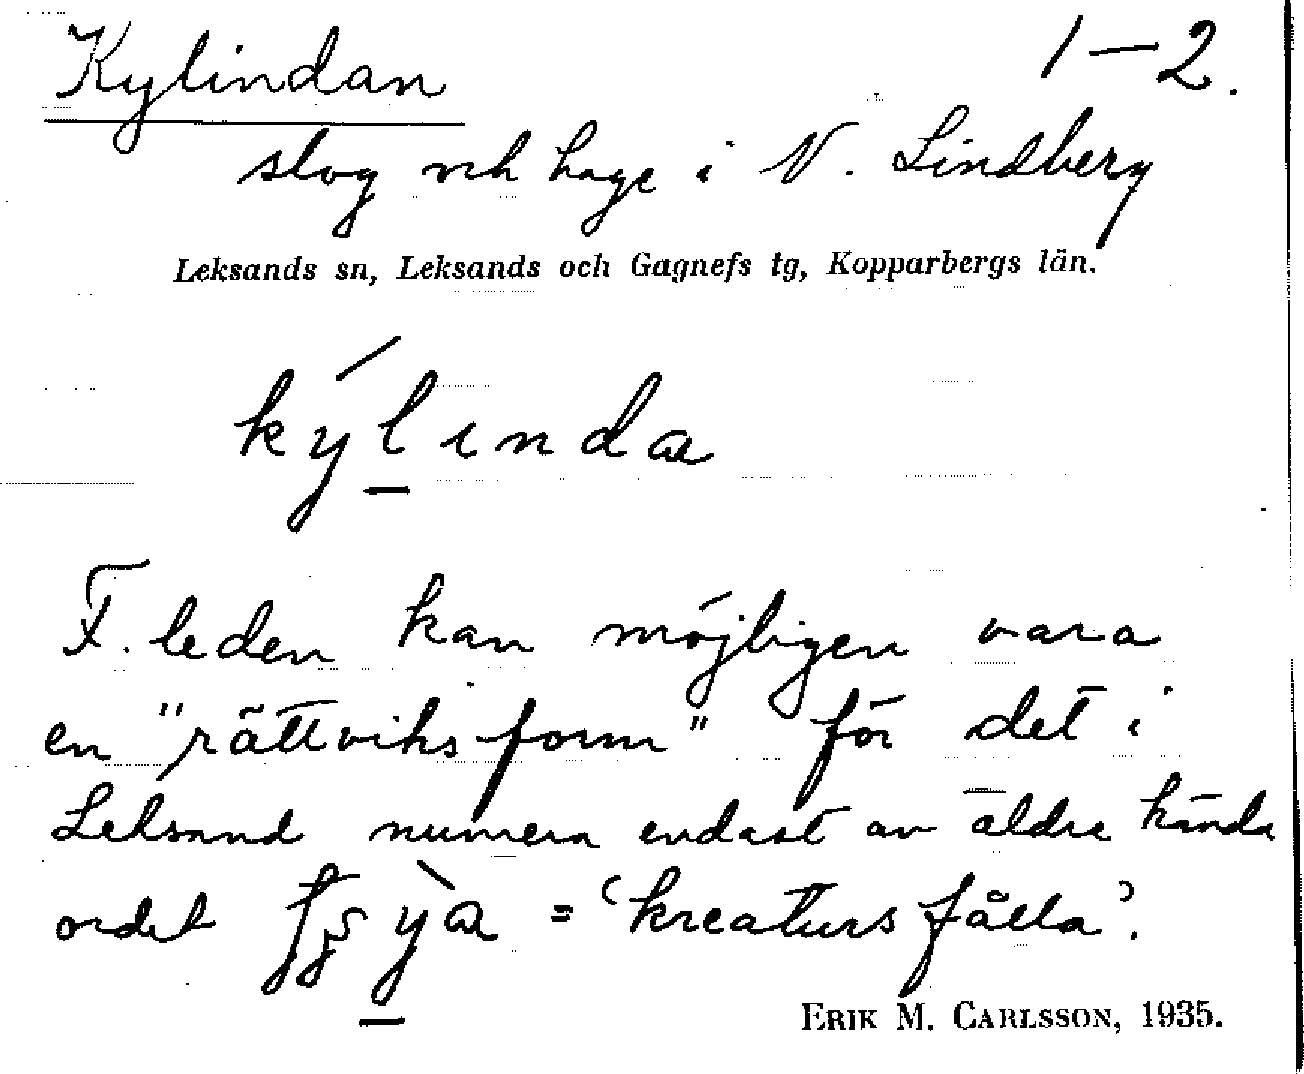 Kylindan 1–2.
slog och hage i N. Lindberg
Leksands sn, Leksands och Gagnefs tg, Kopparbergs län.
kýlinda
F. leden kan möjligen vara
en "rättviksform" för det i
Leksand numera endast av äldre kända
ordet = 'kreatursfålla'.
ERIK M. CARLSSON, 1935.